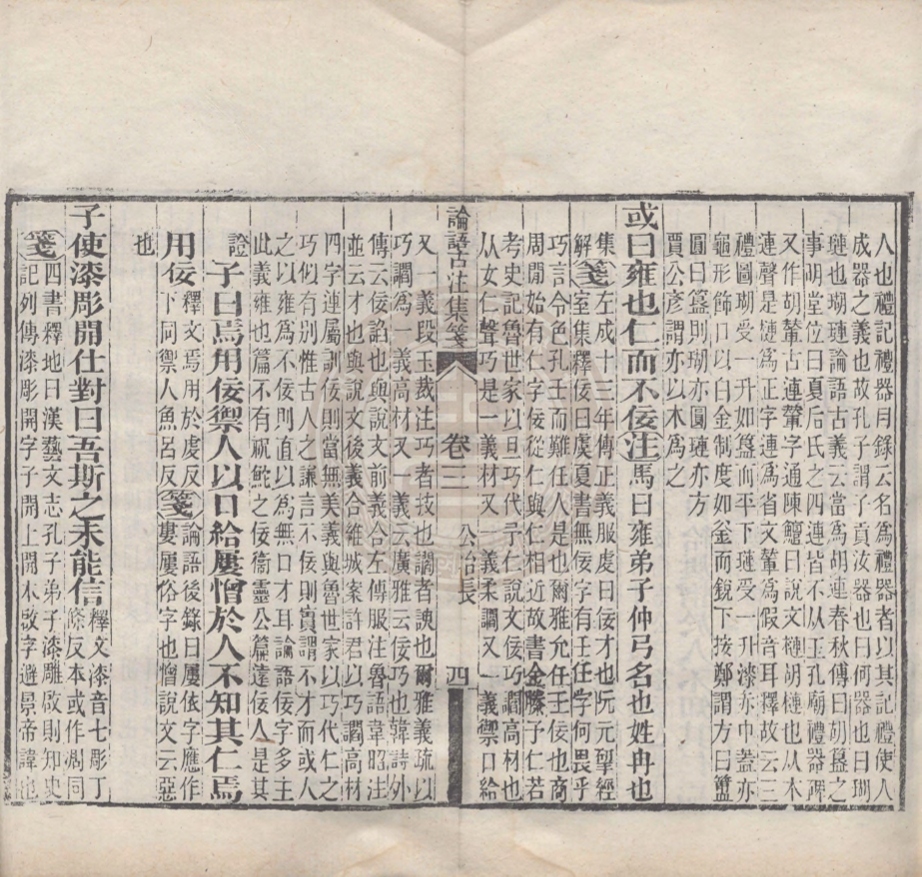 人也禮記禮器目錄云名為禮器者以其記禮使人
成器之義也故孔子謂子貢汝器也曰何器也曰瑚
璉也瑚璉論語古義云當為胡連春秋傳曰胡簋之
事明堂位曰夏后氏之四連皆不从玉孔廟禮器碑
又作胡輦古連輦字通陳鱣曰說文槤胡槤也从木
連聲是槤為正字連為省文輦為假音耳釋故云三
禮圖瑚受一升如簋而平下璉受一升漆赤巾蓋亦
龜形飾口以白金制度如釜而銳下按鄭謂方曰簠
圓曰簋則瑚亦圓璉亦方
賈公彥謂亦以木為之
或曰雍也仁而不佞注馬曰雍弟子仲弓名也姓冉也
集
解箋左成十三年傳正義服虔曰佞才也阮元揅經
室集釋佞曰虞夏書無佞字有壬任字何畏乎
巧言令色孔壬而難任人是也爾雅允任壬佞也商
周閒始有仁字佞從仁與仁相近故書金縢予仁若
考史記魯世家以旦巧代予仁說文佞巧讇高材也
从女仁聲巧是一義材又一義柔讇又一義禦口給
論語古注集箋 卷三 公冶長 四
又一義段玉裁注巧者技也讇者諛也爾雅義疏以
巧讇為一義高材又一義云廣雅云佞巧也韓詩外
傳云佞諂也與說文前義合左傳服注魯語韋昭注
並云才也與說文後義合維城案許君以巧讇高材
四字連屬訓佞則當無美義與魯世家以巧代仁之
巧似有別惟古人之謙言不佞則實謂不才而或人
之以雍為不佞則直以為無口才耳論語佞字多主
此義雍也篇不有祝鮀之佞衞靈公篇遠佞人是其
證
子曰焉用佞禦人以口給屢憎於人不知其仁焉
用佞釋文焉用於虔反
下同禦人魚呂反箋論語後錄曰屢依字應作
婁屢俗字也憎說文云惡
也
子使漆彫開仕對曰吾斯之未能信釋文漆音七彫丁
條反本或作凋同
箋四書釋地曰漢藝文志孔子弟子漆雕啟則知史
記列傳漆彫開字子開上開本啟字避景帝諱也